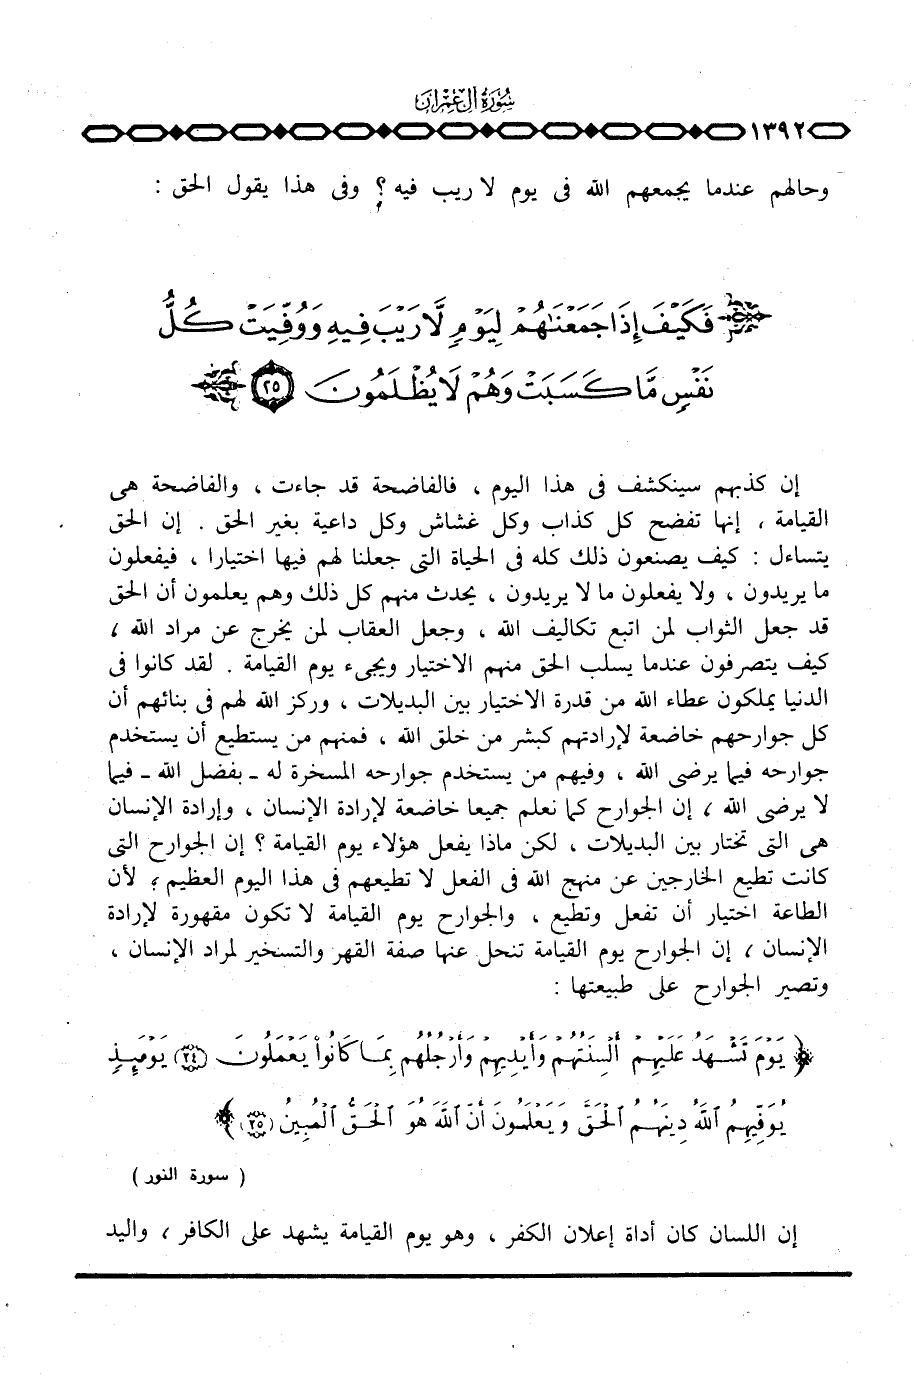 سورة آل عمران
١٣٩٢
وحالهم عندما يجمعهم الله فى يوم لا ريب فيه ؟ وفى هذا يقول الحق :
فَكَيْفَ إِذَا جَمَعْنَٰهُمْ لِيَوْمٍ لَّا رَيْبَ فِيهِ وَوُفِّيَتْ كُلُّ
نَفْسٍ مَّا كَسَبَتْ وَهُمْ لَا يُظْلَمُونَ ٢٥
إن كذبهم سينكشف فى هذا اليوم ، فالفاضحة قد جاءت ، والفاضحة هى
القيامة ، إنها تفضح كل كذاب وكل غشاش وكل داعية بغير الحق . إن الحق
يتساءل : كيف يصنعون ذلك كله فى الحياة التى جعلنا لهم فيها اختيارا ، فيفعلون
ما يريدون ، ولا يفعلون ما لا يريدون ، يحدث منهم كل ذلك وهم يعلمون أن الحق
قد جعل الثواب لمن اتبع تكاليف الله ، وجعل العقاب لمن يخرج عن مراد الله ،
كيف يتصرفون عندما يسلب الحق منهم الاختيار ويجىء يوم القيامة . لقد كانوا فى
الدنيا يملكون عطاء الله من قدرة الاختيار بين البديلات ، وركز الله لهم فى بنائهم أن
كل جوارحهم خاضعة لإرادتهم كبشر من خلق الله ، فمنهم من يستطيع أن يستخدم
جوارحه فيما يرضى الله ، وفيهم من يستخدم جوارحه المسخرة له ـ بفضل الله ـ فيما
لا يرضى الله ، إن الجوارح كما نعلم جميعا خاضعة لإرادة الإنسان ، وإرادة الإنسان
هى التى تختار بين البديلات ، لكن ماذا يفعل هؤلاء يوم القيامة ؟ إن الجوارح التى
كانت تطيع الخارجين عن منهج الله فى الفعل لا تطيعهم فى هذا اليوم العظيم ؛ لأن
الطاعة اختيار أن تفعل وتطيع ، والجوارح يوم القيامة لا تكون مقهورة لإرادة
الإنسان ، إن الجوارح يوم القيامة تنحل عنها صفة القهر والتسخير لمراد الإنسان ،
وتصير الجوارح على طبيعتها :
﴿ يَوْمَ تَشْهَدُ عَلَيْهِمْ أَلْسِنَتُهُمْ وَأَيْدِيهِمْ وَأَرْجُلُهُم بِمَا كَانُواْ يَعْمَلُونَ (٢٤) يَوْمَئِذٍ
يُوَفِّيهِمُ ٱللَّهُ دِينَهُمُ ٱلْحَقَّ وَيَعْلَمُونَ أَنَّ ٱللَّهَ هُوَ ٱلْحَقُّ ٱلْمُبِينُ (٢٥) ﴾
( سورة النور )
إن اللسان كان أداة إعلان الكفر ، وهو يوم القيامة يشهد على الكافر ، واليد